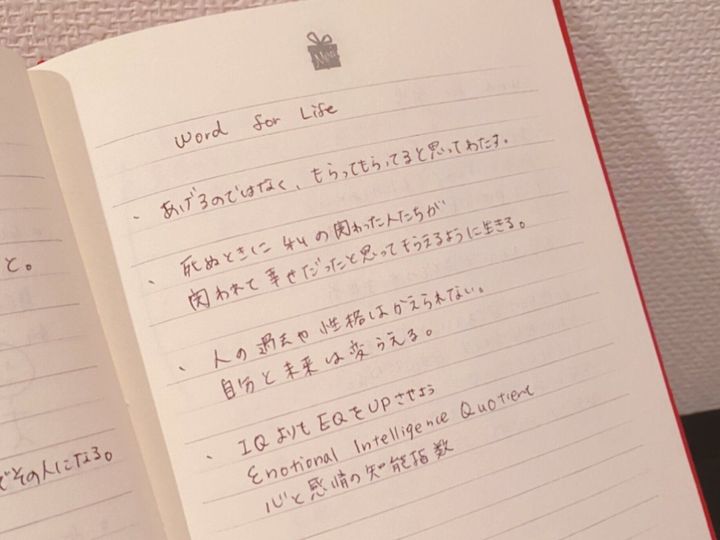 と。
でその人になる。
Word for Life
・あげるのではなく、もらってもらってると思ってわたす。
・死ぬときに 私の関わった人たちが
関われて幸せだったと思ってもらえるように生きる。
・人の過去や性格はかえられない。
自分と未来は変うえる。
・IQよりもEQをUPさせよう
Emotional Intelligence Quotient
心と感情の知能指数